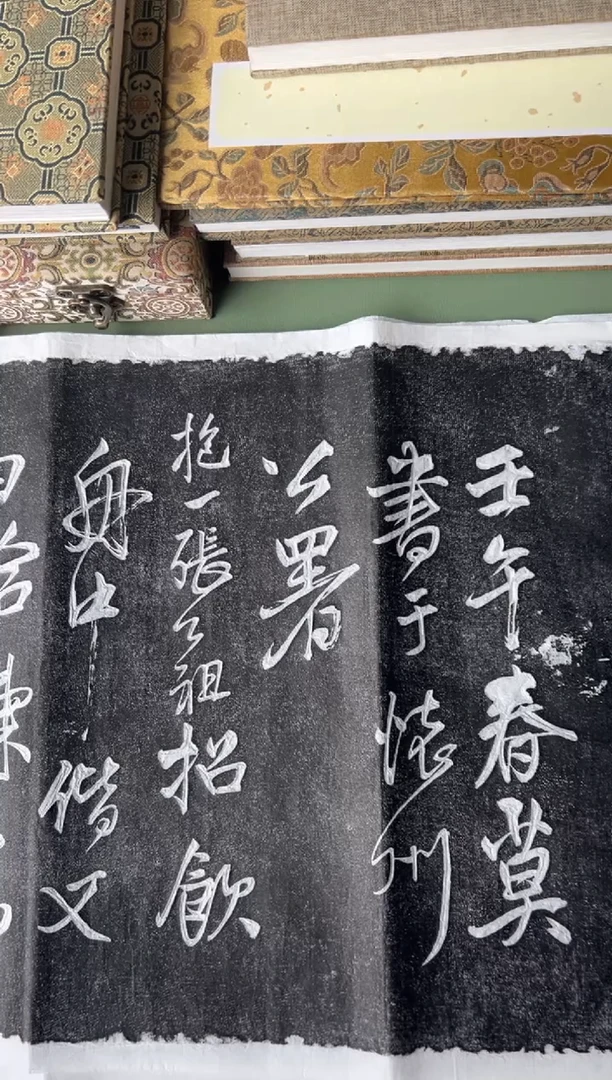 壬午春莫
書于懷州
公署
抱一張公祖招飲
舟中偕文